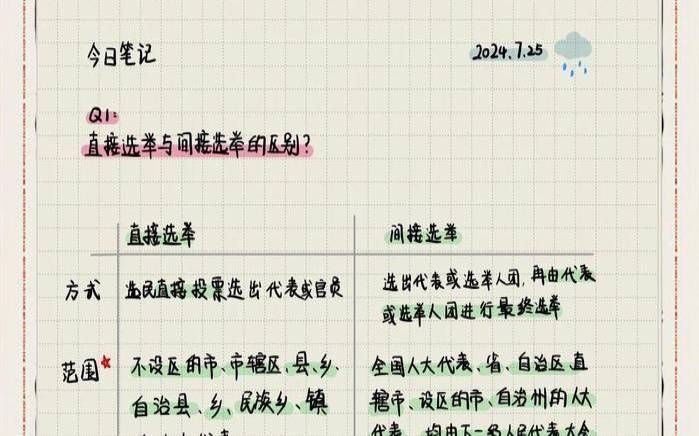 今日笔记
2024.7.25
Q1:
直接选举与间接选举的区别?
直接选举
间接选举
方式
选民直接投票选出代表或官员
选出代表或选举人团,再由代表
或选举人团进行最终选举
范围
不设区的市、市辖区、县、乡、
自治县、乡、民族乡、镇
全国人大代表、省、自治区、直
辖市、设区的市、自治州的人大
代表、均由下一
人民代表大会